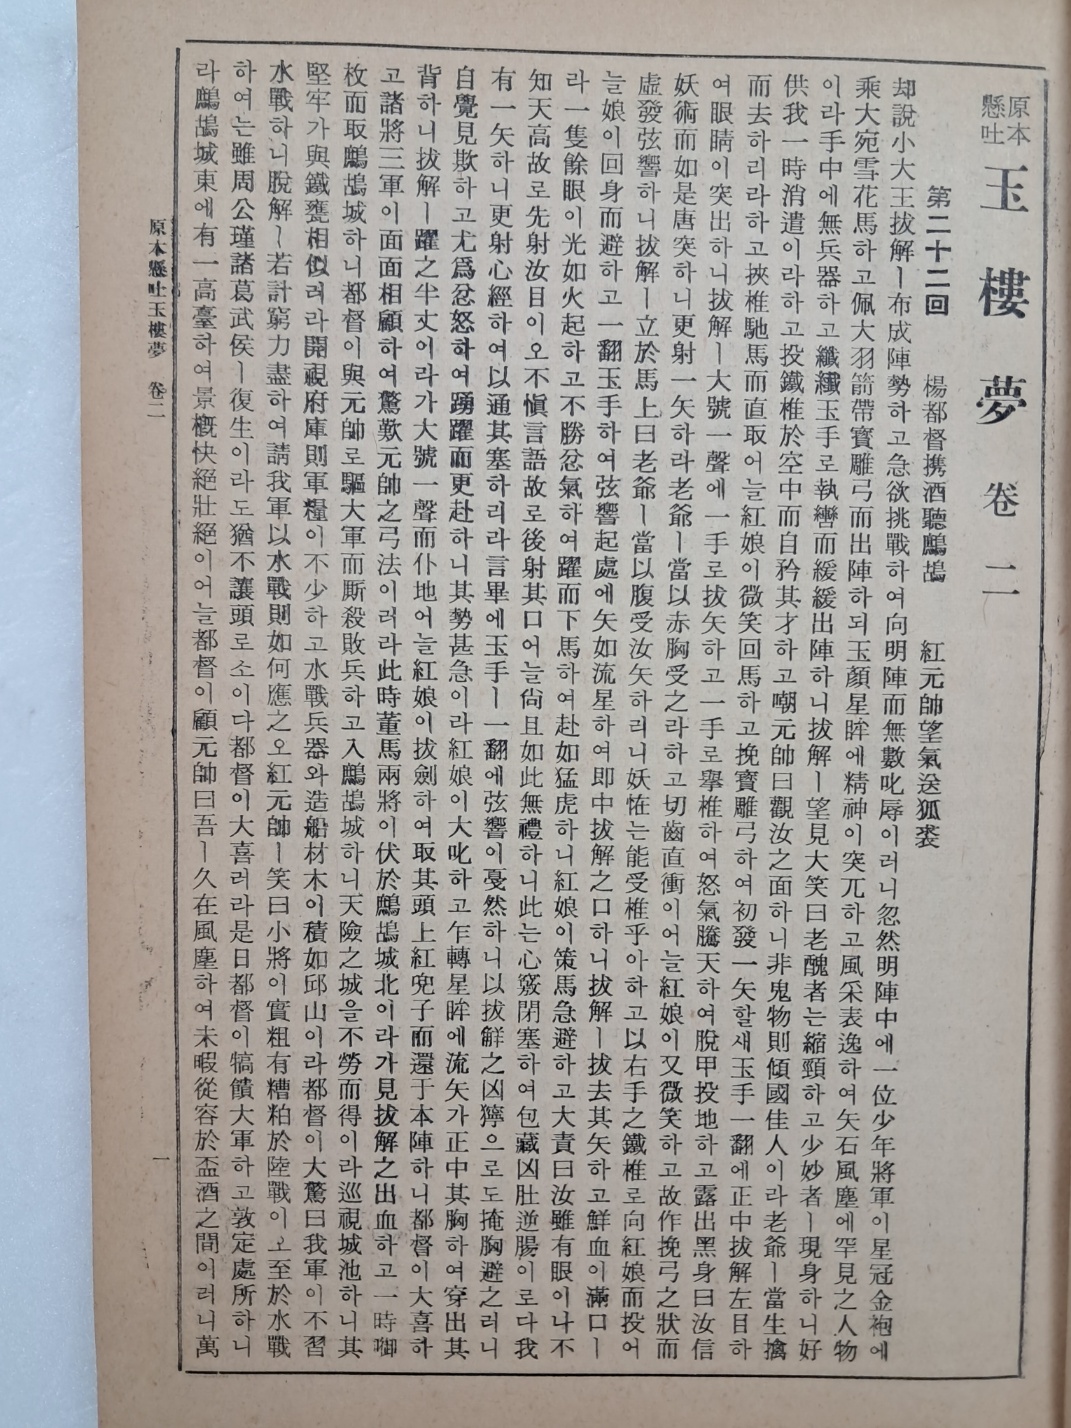 原本
懸吐
玉樓夢 卷二
第二十二回 楊都督携酒聽鷓鴣 紅元帥望氣送狐裘
却說小大王拔解ㅣ布成陣勢하고急欲挑戰하여向明陣而無數叱辱이러니忽然明陣中에一位少年將軍이星冠金袍에
乘大宛雪花馬하고佩大羽箭帶寶雕弓而出陣하되玉顏星眸에精神이突兀하고風采表逸하여矢石風塵에罕見之人物
이라手中에無兵器하고纖纖玉手로執轡而緩緩出陣하니拔解ㅣ望見大笑曰老醜者는縮頸하고少妙者ㅣ現身하니好
供我一時消遣이라하고投鐵椎於空中而自矜其才하고嘲元帥曰觀汝之面하니非鬼物則傾國佳人이라老爺ㅣ當生擒
而去하리라하고挾椎馳馬而直取어늘紅娘이微笑回馬하고挽寶雕弓하여初發一矢할새玉手一翻에正中拔解左目하
여眼睛이突出하니拔解ㅣ大號一聲에一手로拔矢하고一手로擧椎하여怒氣騰天하여脫甲投地하고露出黑身曰汝信
妖術而如是唐突하니更射一矢하라老爺ㅣ當以赤胸受之라하고切齒直衝이어늘紅娘이又微笑하고故作挽弓之狀而
虛發弦響하니拔解ㅣ立於馬上曰老爺ㅣ當以腹受汝矢하리니妖怪는能受椎乎아하고以右手之鐵椎로向紅娘而投어
늘娘이回身而避하고一翻玉手하여弦響起處에矢如流星하여即中拔解之口하니拔解ㅣ拔去其矢하고鮮血이滿口ㅣ
라一隻餘眼이光如火起하고不勝忿氣하여躍而下馬하여赴如猛虎하니紅娘이策馬急避하고大責曰汝雖有眼이나不
知天高故로先射汝目이오不愼言語故로後射其口어늘尙且如此無禮하니此는心竅閉塞하여包藏凶肚逆腸이로다我
有一矢하니更射心經하여以通其塞하리라言畢에玉手ㅣ一翻에弦響이戛然하니以拔解之凶獰으로도掩胸避之러니
自覺見欺하고尤爲忿怒하여踴躍而更赴하니其勢甚急이라紅娘이大叱하고乍轉星眸에流矢가正中其胸하여穿出其
背하니拔解ㅣ躍之半丈이라가大號一聲而仆地어늘紅娘이拔劍하여取其頭上紅兜子而還于本陣하니都督이大喜하
고諸將三軍이面面相顧하여驚歎元帥之弓法이러라此時董馬兩將이伏於鷓鴣城北이라가見拔解之出血하고一時啣
枚而取鷓鴣城하니都督이與元帥로驅大軍而厮殺敗兵하고入鷓鴣城하니天險之城을不勞而得이라巡視城池하니其
堅牢가與鐵甕相似러라開視府庫則軍糧이不少하고水戰兵器와造船材木이積如邱山이라都督이大驚曰我軍이不習
水戰하니脫解ㅣ若計窮力盡하여請我軍以水戰則如何應之오紅元帥ㅣ笑曰小將이實粗有糟粕於陸戰이오至於水戰
하여는雖周公瑾諸葛武侯ㅣ復生이라도猶不讓頭로소이다都督이大喜러라是日都督이犒饋大軍하고敦定處所하니
라鷓鴣城東에有一高臺하여景槪快絕壯絕이어늘都督이顧元帥曰吾ㅣ久在風塵하여未暇從容於盃酒之間이러니萬
原本懸吐玉樓夢 卷二
一